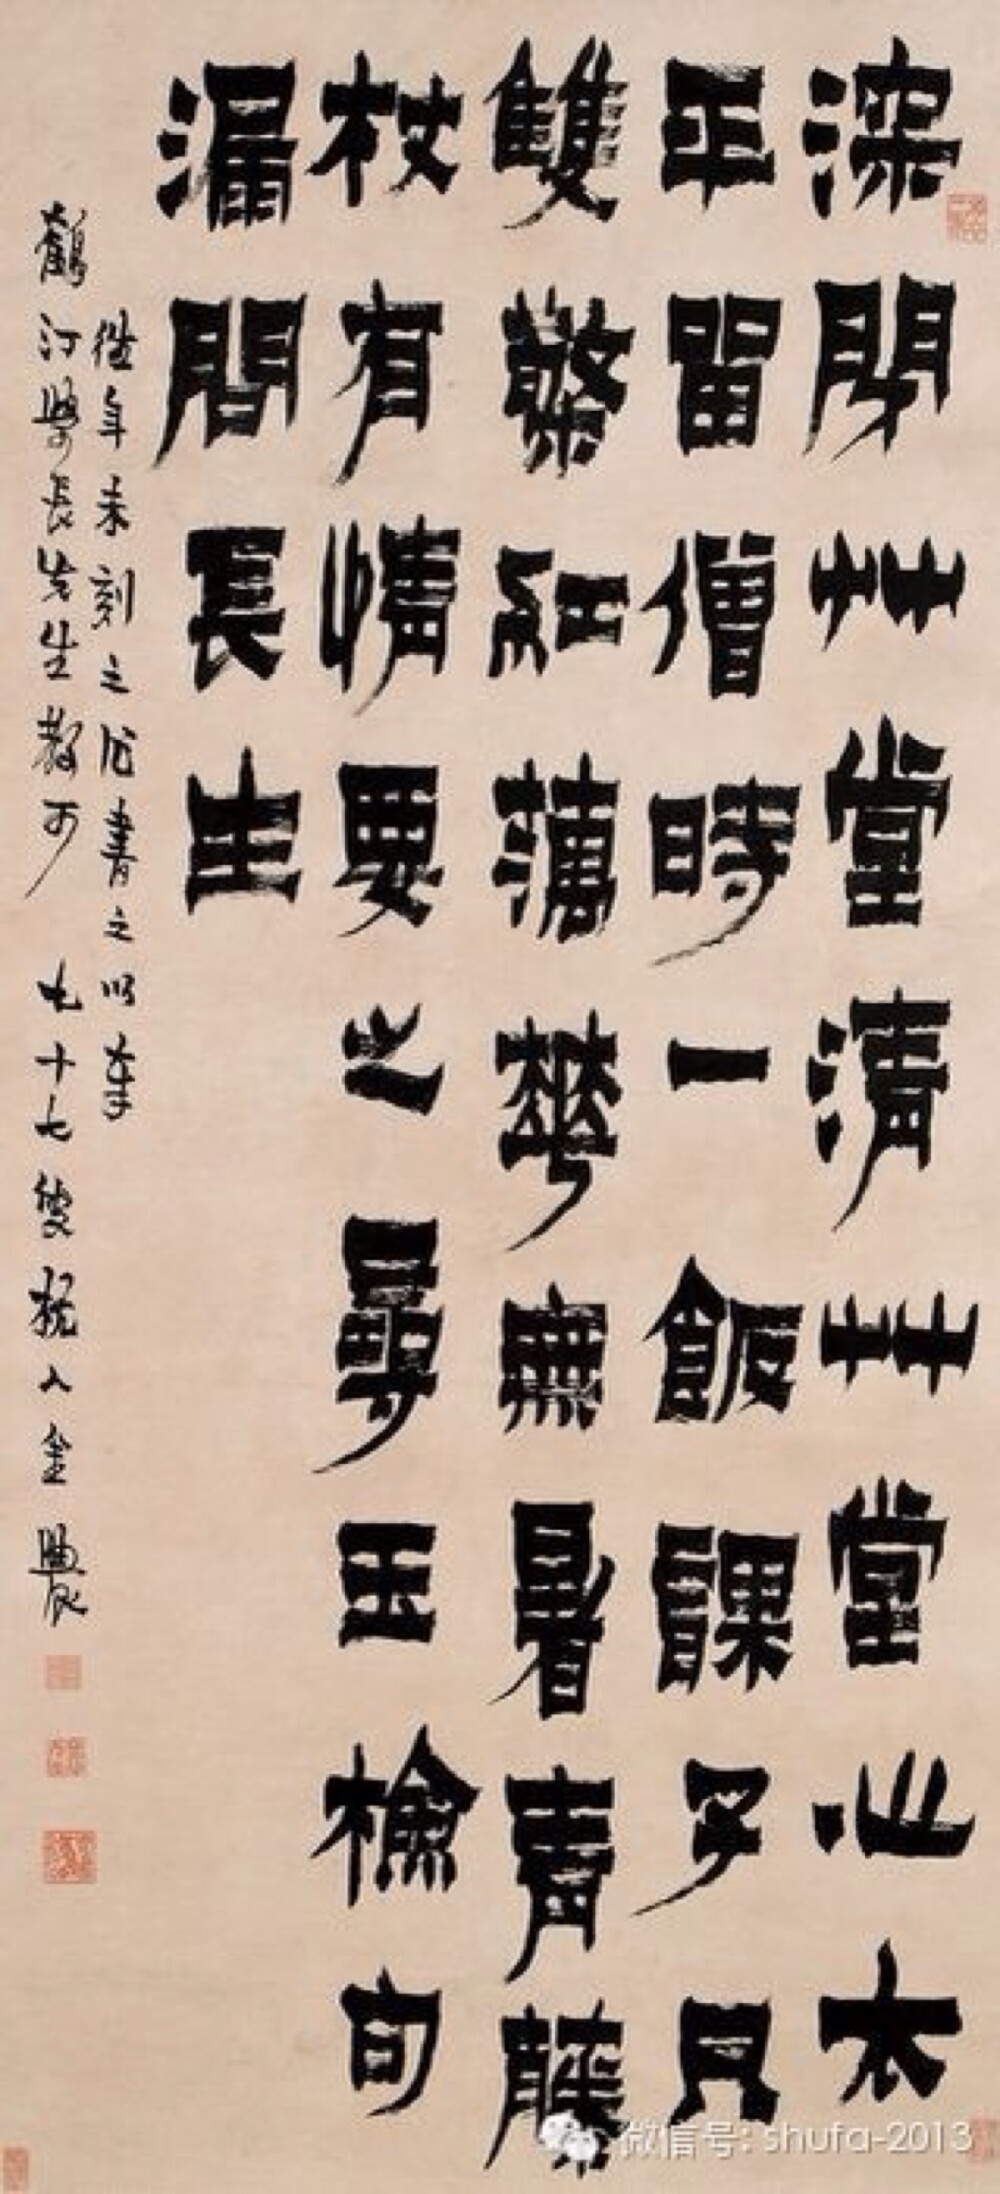 深閉艸堂清艸堂心太
平留僧時一飯課子只
雙檠紅藕華無暑青藤
杖有情要之尋玉檢句
漏問長生
往年未刻之作書之以奉
鶴汀學長先生教可 七十七叟杭人金農
微信号: shufa-2013